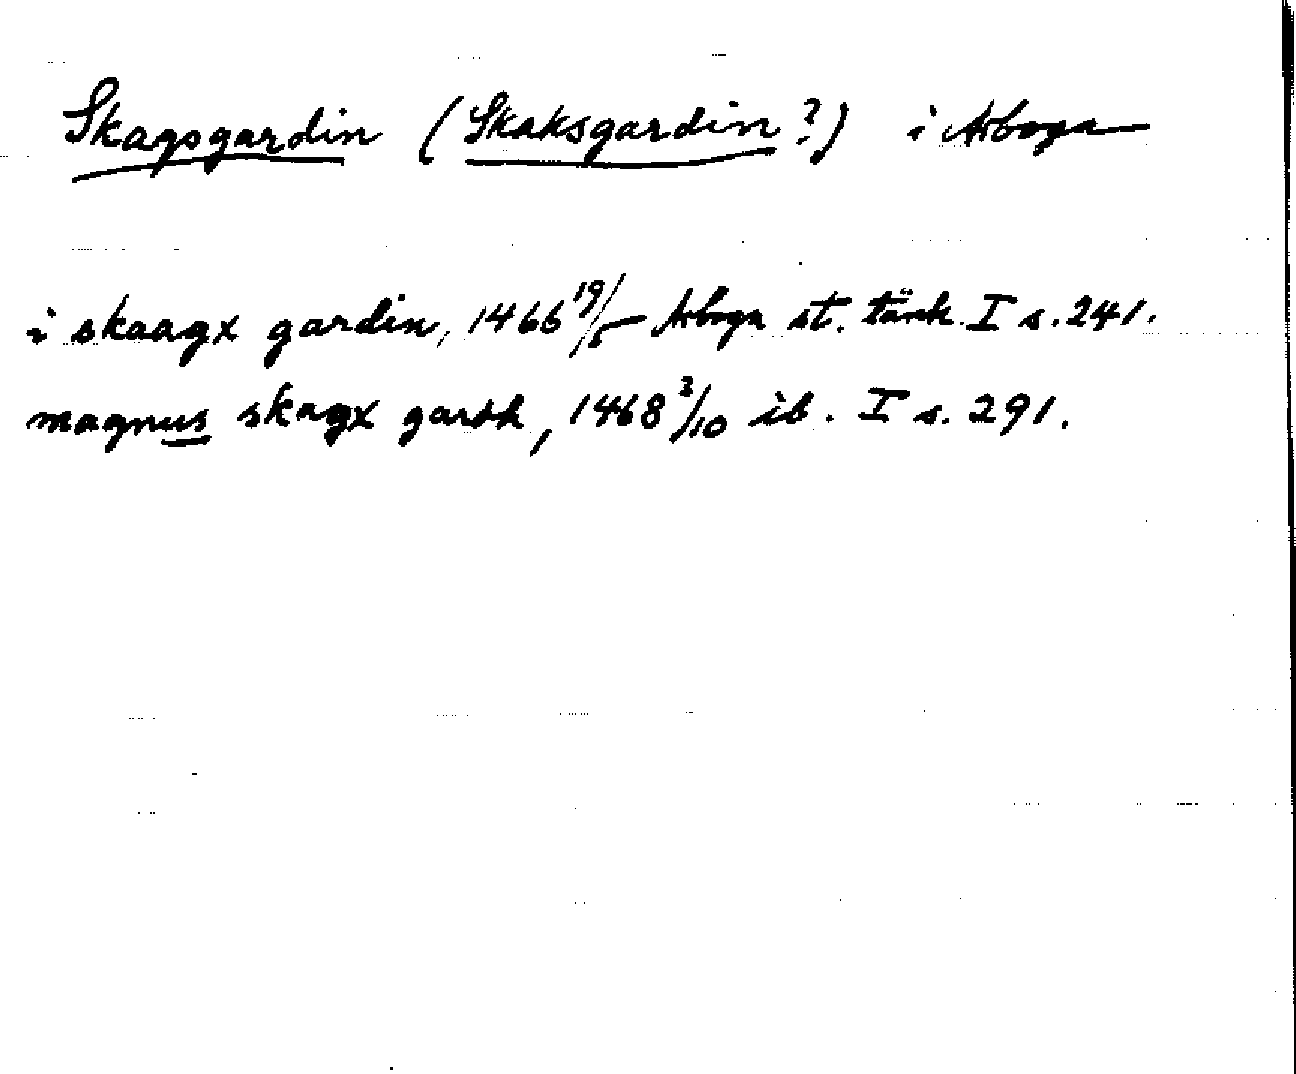 Skagsgardin (Skaksgardin?) i Arboga
i skaagx gardin, 1466 19/5 Arboga st. tänk. I s. 241.
magnus skagx gardh, 1468 3/10 ib. I s. 291.